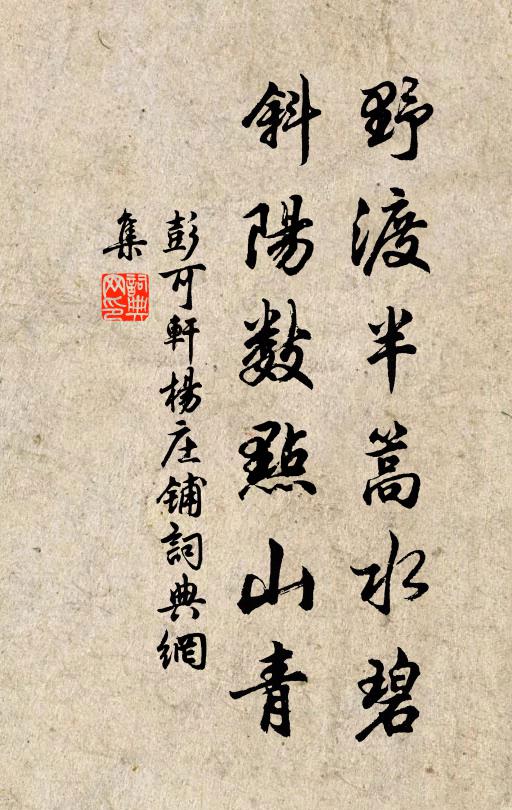 野渡半篙水碧
斜陽數點山青
彭可軒楊庄鋪詞典網
集
詞典
网印